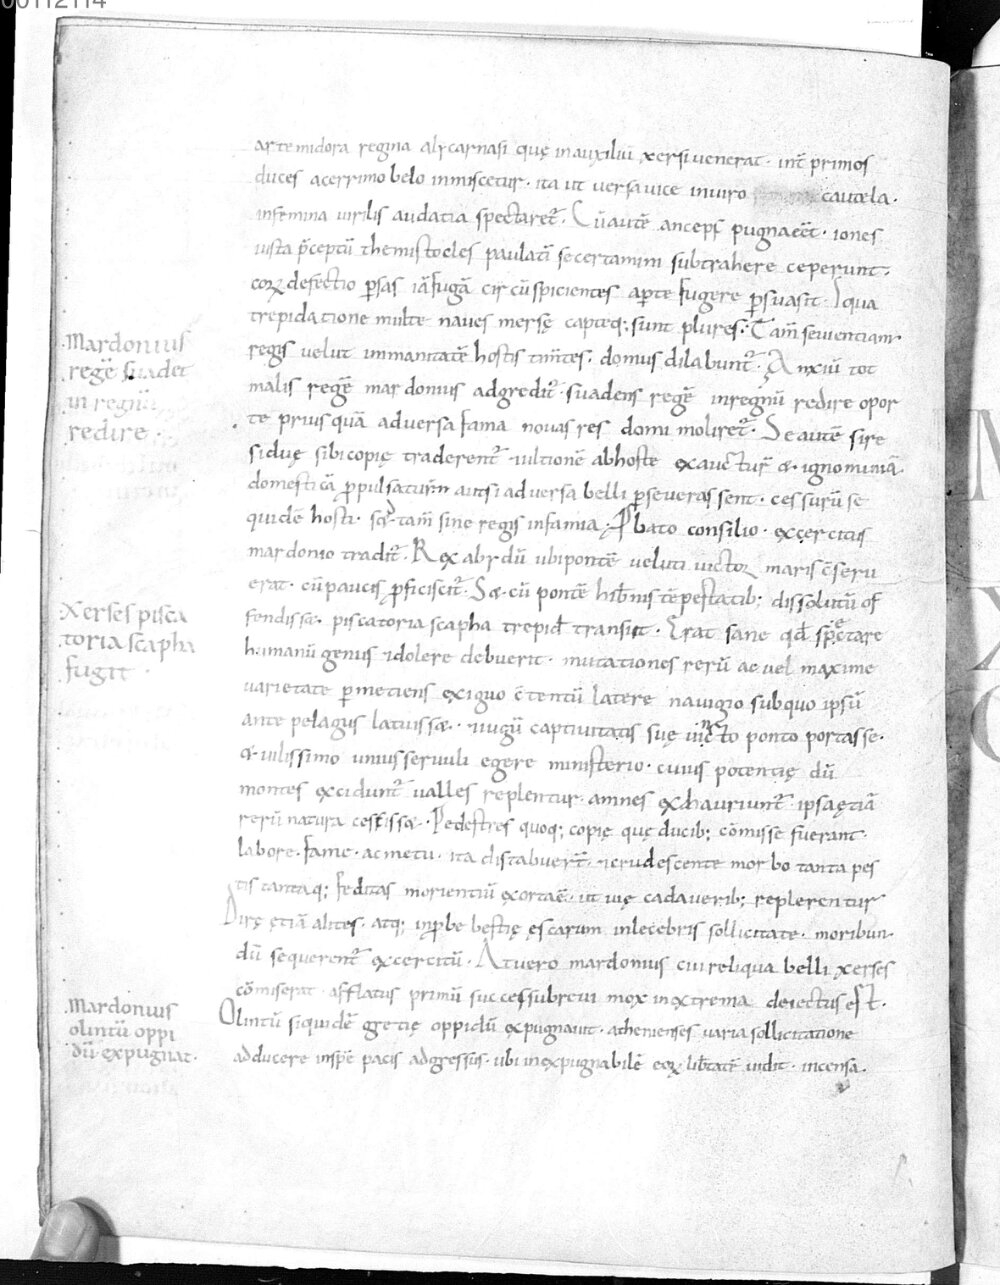 00112114
artemidora regina alycarnasi quę inauxiliū xersi venerat · int̄ primos
duces acerrimo belo inmiscetur · ita ut versa vice inviro cautela ·
infemina virilis audatia spectaret᷑ · Cū autē anceps pugna eēt · iones
iusta p̄ceptū themistocles paulatī se certamini subtrahere ceperunt ·
eoꝝ defectio ꝑsas iā fugā circūspicientes aꝑte fugere ꝑsuasit · Iqua
trepidatione multe naves mersę capteq; sunt plures · Tam̄ seuientiam
regis velut immanitatē hostis tim̄tes · domus dilabunt᷑ · Anxiū tot
malis regē mardonius adgredit᷑ · suadens regē inregnū redire opor
te priusquā adversa fama novas res domi moliret᷑ · Se autē si re
siduę sibi copię traderent᷑ · ultionē abhoste exactur᷑ & ignominiā
domesticā ꝓpulsatur᷑ aut si adversa belli ꝑseverassent · cessurū se
quidē hosti · s; tam̄ sine regis infamia · Ꝓbato consilio · exercitus
mardonio tradit᷑ · Rex abydū ubi pontē veluti victor maris c̄seru
erat · cū paucis ꝓficiscit᷑ · Sed cū pontē hib̄nis tēpestatib; dissolutū of
fendiss& · piscatoria scapha trepid᷑ transiit · Erat sane qd̄ spectare
humanū genus & dolere debuerit · mutationes rerū ac vel maxime
varietate ꝑmetiens exiguo c̄tentū latere navigio subquo ipsū
ante pelagus latuiss& · & iugū captivitatis suę iuncto ponto portasse ·
& vilissimo unius servuli egere ministerio · cuius potentię dū
montes excidunt᷑ valles replentur · amnes exhauriunt᷑ · ipsa ętiā
rerū natura cessiss& · Pedestres quoq; copię quę ducib; cōmisse fuerant ·
labore · fame · ac metu · ita distabuer᷑t · & crudescente morbo tanta pes
tis tantaq; feditas morientiū exorta ē · ut vię cadaverib; replerentur
Dirę ętiā alites · atq; inp̄be bestię escarum inlecebris sollicitate · moribun
dū sequerent᷑ excercitū · At vero mardonius cui reliqua belli xerses
cōmiserat · afflatus primū successu brevi mox inextrema deiectus est ·
Olintū siquidē gretię oppidū expugnavit · athenienses varia sollicitatione
adducere inspē pacis adgressus · ubi inexpugnabilē eoꝝ lib̄tatē vidit · incensa ·
Mardonius
regē suadet
in regnū
redire ·
Xerses pisca
toria scapha
fugit ·
Mardonius
olintū oppi
dū expugnat ·